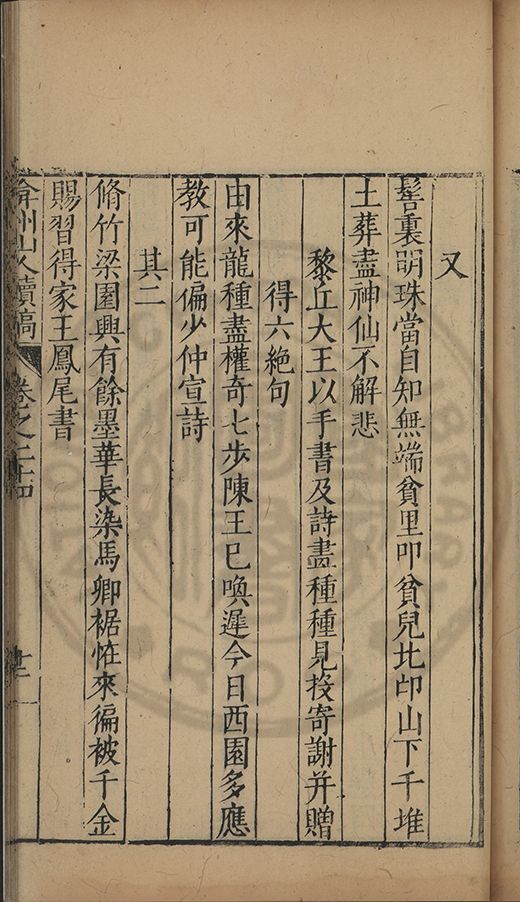 又
髻裏明珠當自知無端貧里叩貧兒北邙山下千堆
土葬盡神仙不解悲
黎丘大王以手書及詩畫種種見投寄謝并贈
得六絕句
由來龍種盡權奇七步陳王已喚遲今日西園多應
教可能偏少仲宣詩
其二
脩竹梁園興有餘墨華長染馬卿裾恠來徧被千金
賜習得家王鳳尾書
弇州山人續稿 卷之二十四